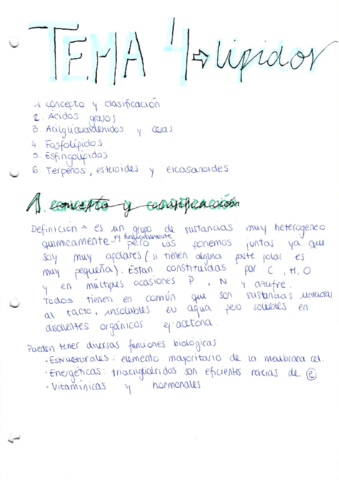 TEMA 4 → lípidos
1. concepto y clasificación
2. Ácidos grasos
3. Acilglicéridos y ceras
4. Fosfolípidos
5. Esfingolípidos
6. Terpenos, esteroides y eicosanoides
1. concepto y clasificación
Definición → es un grupo de sustancias muy heterogéneo
químicamente pero las ponemos juntas ya que
son muy apolares (si tienen alguna parte polar es
muy pequeña). Están constituidas por C, H, O
y en múltiples ocasiones P, N y azufre.
Todos tienen en común que son sustancias untuosas
al tacto, insolubles en agua pero solubles en
disolventes orgánicos ej acetona.
Pueden tener diversas funciones biológicas
• Estructurales: elemento mayoritario de la membrana cel.
• Energéticas: triacilglicéridos son eficientes reservas de e
• Vitamínicas y hormonales